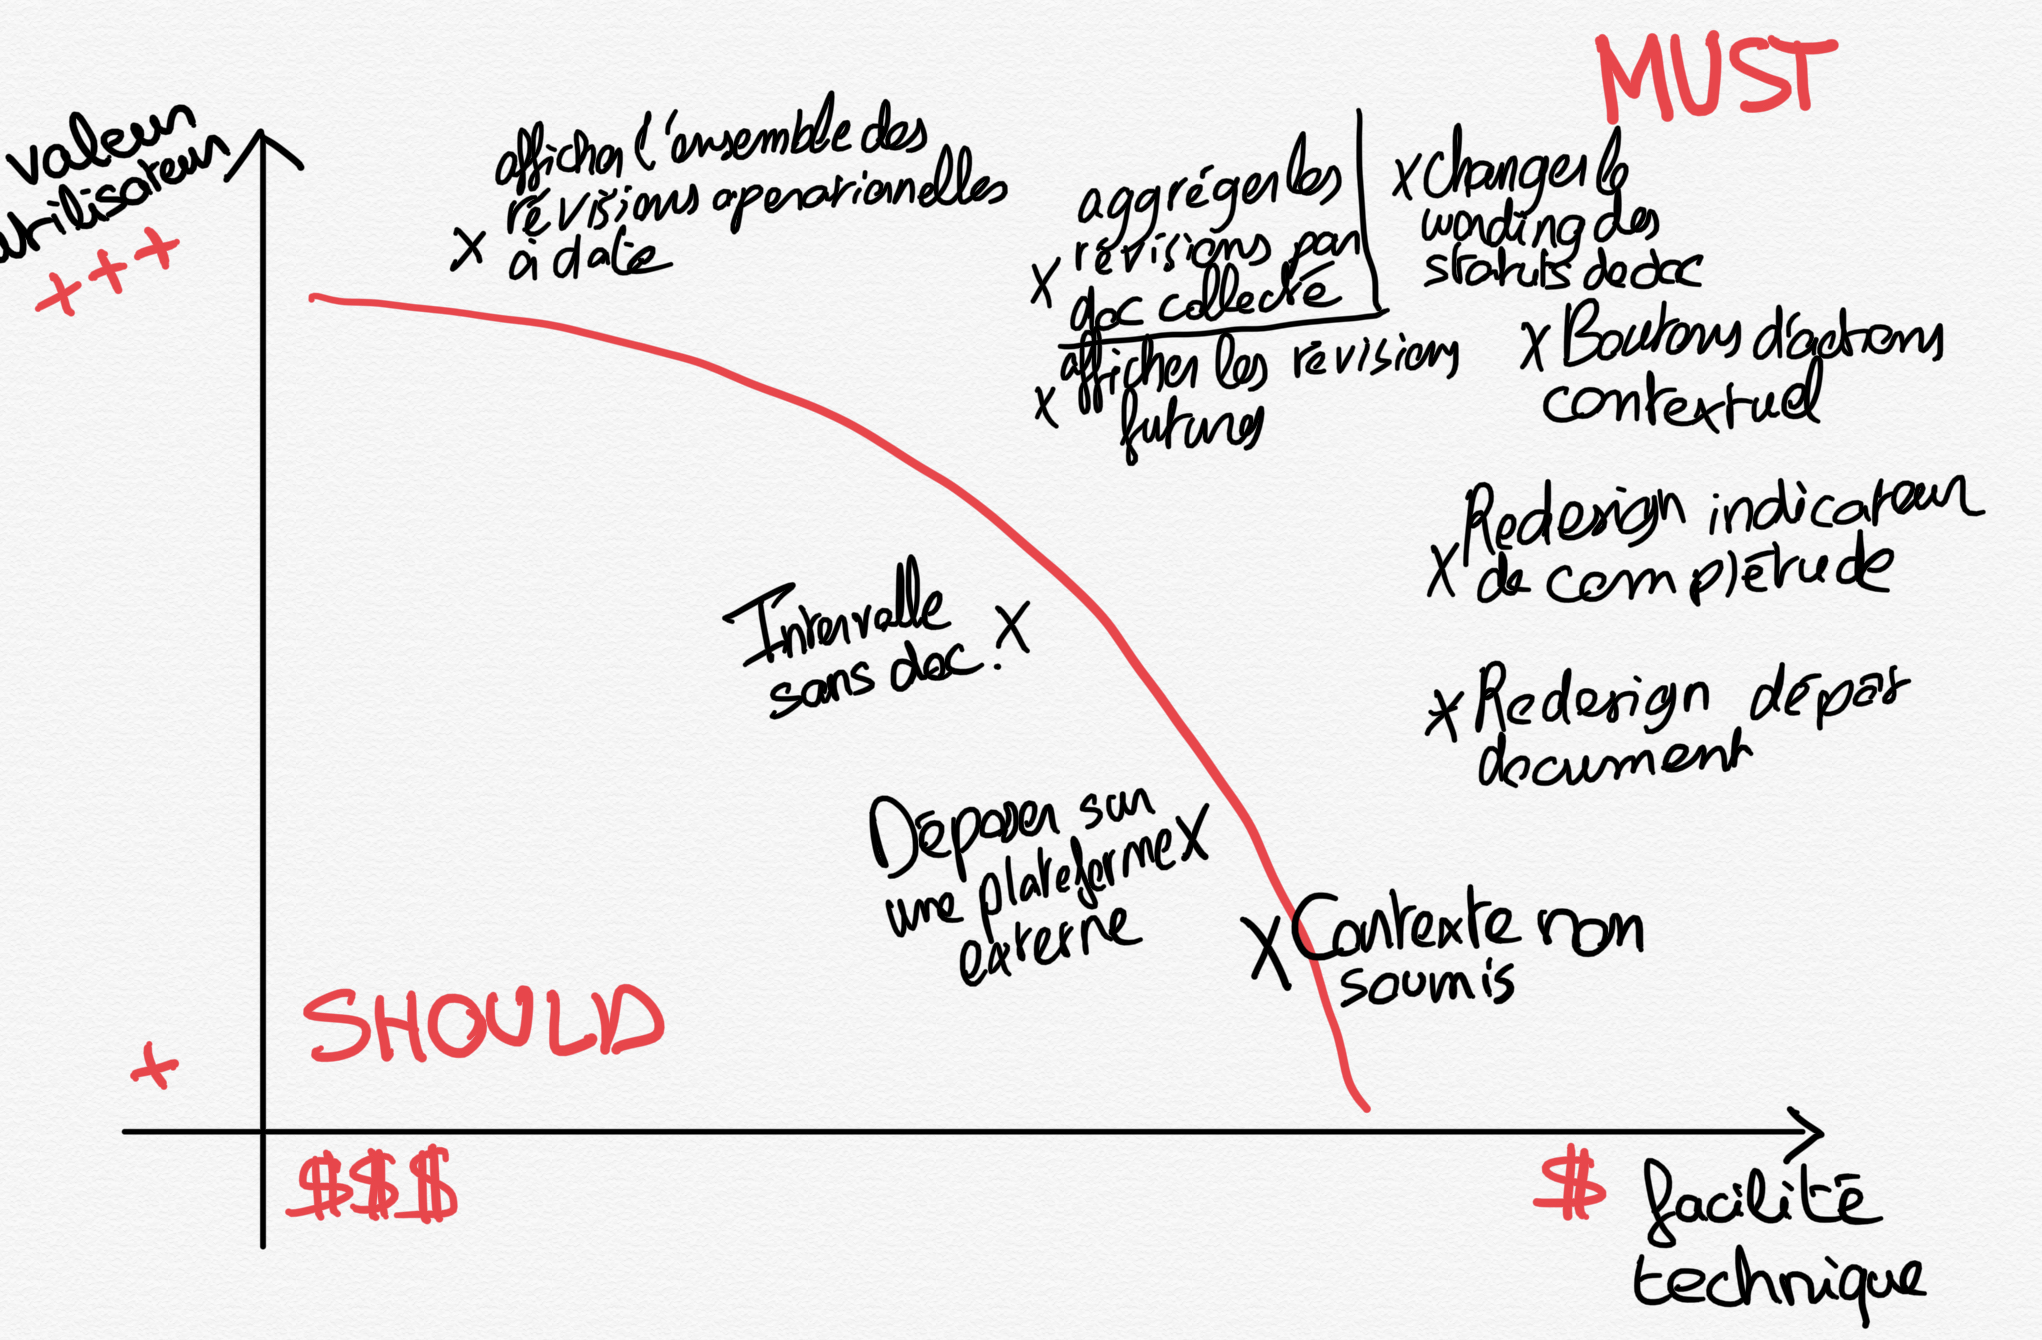 MUST
valeur
utilisateur
+++
afficher l'ensemble des
révisions operationnelles
x à date
aggréger les
x révisions par
doc collecté
x changer le
wording des
statuts de doc
x afficher les révisions
futures
x Boutons d'actions
contextuel
Redesign indicateur
x de complétude
x Redesign dépôt
document
Intervalle
sans doc. x
Déposer sur
une plateforme x
externe
x Contexte non
soumis
SHOULD
+
$$$
$ facilité
technique